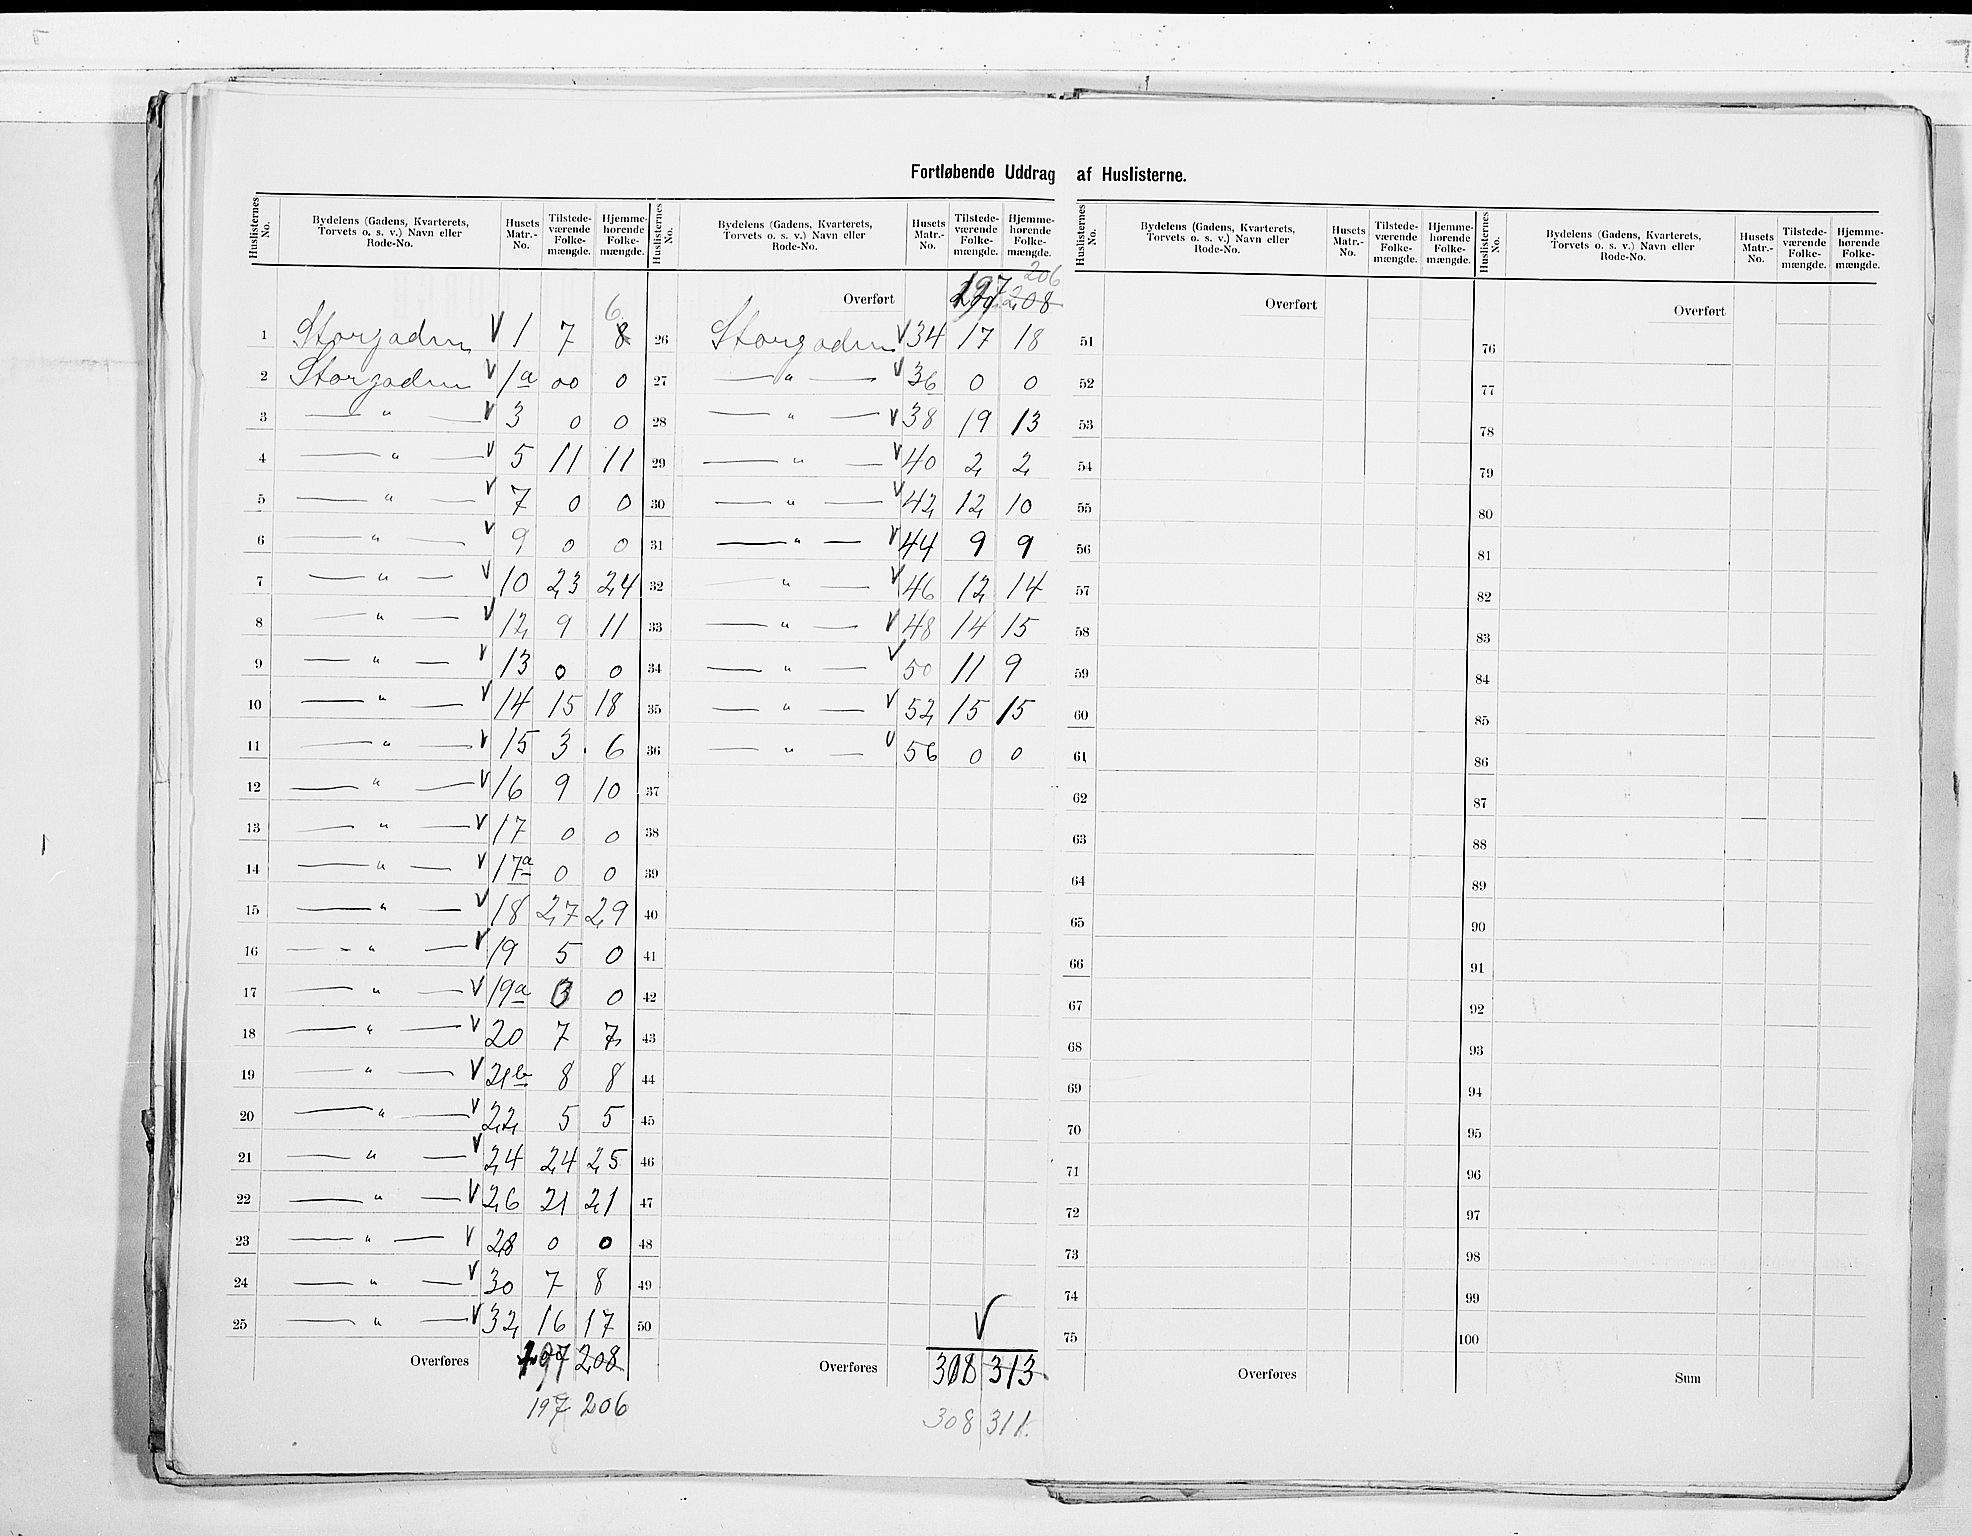 Fortløbende Uddrag af Huslisterne.
Huslisternes No. Bydelens (Gadens, Kvarterets, Torvets o. s. v.) Navn eller Rode-No. Husets Matr.-No. Tilstedeværende Folkemængde. Hjemmehørende Folkemængde.
6
1 Storgaden V 1 7 8
2 Storgaden V 1a 00 0
3 — " — V 3 0 0
4 — " — V 5 11 11
5 — " — V 7 0 0
6 — " — V 9 0 0
7 — " — V 10 23 24
8 — " — V 12 9 11
9 — " — V 13 0 0
10 — " — V 14 15 18
11 — " — V 15 3 . 6
12 — " — V 16 9 10
13 — " — V 17 0 0
14 — " — V 17a 0 0
15 — " — V 18 27 29
16 — " — V 19 5 0
17 — " — V 19a 0
18 — " — V 20 7 7
19 — " — V 21b 8 8
20 — " — V 22 5 5
21 — " — V 24 24 25
22 — " — V 26 21 21
23 — " — V 28 0 0
24 — " — V 30 7 8
25 — " — V 32 16 17
Overføres 197 208
197 206
Huslisternes No. Bydelens (Gadens, Kvarterets, Torvets o. s. v.) Navn eller Rode-No. Husets Matr.-No. Tilstedeværende Folkemængde. Hjemmehørende Folkemængde.
206
Overført 197 208
26 Storgaden V 34 17 18
27 — " — V 36 0 0
28 — " — V 38 19 13
29 — " — V 40 2 2
30 — " — V 42 12 10
31 — " — V 44 9 9
32 — " — V 46 12 14
33 — " — V 48 14 15
34 — " — V 50 11 9
35 — " — V 52 15 15
36 — " — V 56 0 0
37
38
39
40
41
42
43
44
45
46
47
48
49
50 V
Overføres 308 313
308 311.
Huslisternes No. Bydelens (Gadens, Kvarterets, Torvets o. s. v.) Navn eller Rode-No. Husets Matr.-No. Tilstedeværende Folkemængde. Hjemmehørende Folkemængde.
Overført
51
52
53
54
55
56
57
58
59
60
61
62
63
64
65
66
67
68
69
70
71
72
73
74
75
Overføres
Huslisternes No. Bydelens (Gadens, Kvarterets, Torvets o. s. v.) Navn eller Rode-No. Husets Matr.-No. Tilstedeværende Folkemængde. Hjemmehørende Folkemængde.
Overført
76
77
78
79
80
81
82
83
84
85
86
87
88
89
90
91
92
93
94
95
96
97
98
99
100
Sum